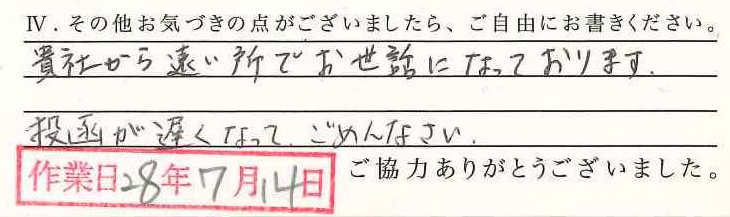 Ⅳ．その他お気づきの点がございましたら、ご自由にお書きください。
貴社から遠い所でお世話になっております.
投函が遅くなって、ごめんなさい.
作業日28年7月14日
ご協力ありがとうございました。